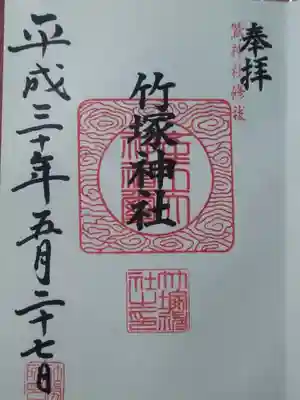 奉拝
竹塚神社
平成三十年五月二十七日
竹塚神
社之印